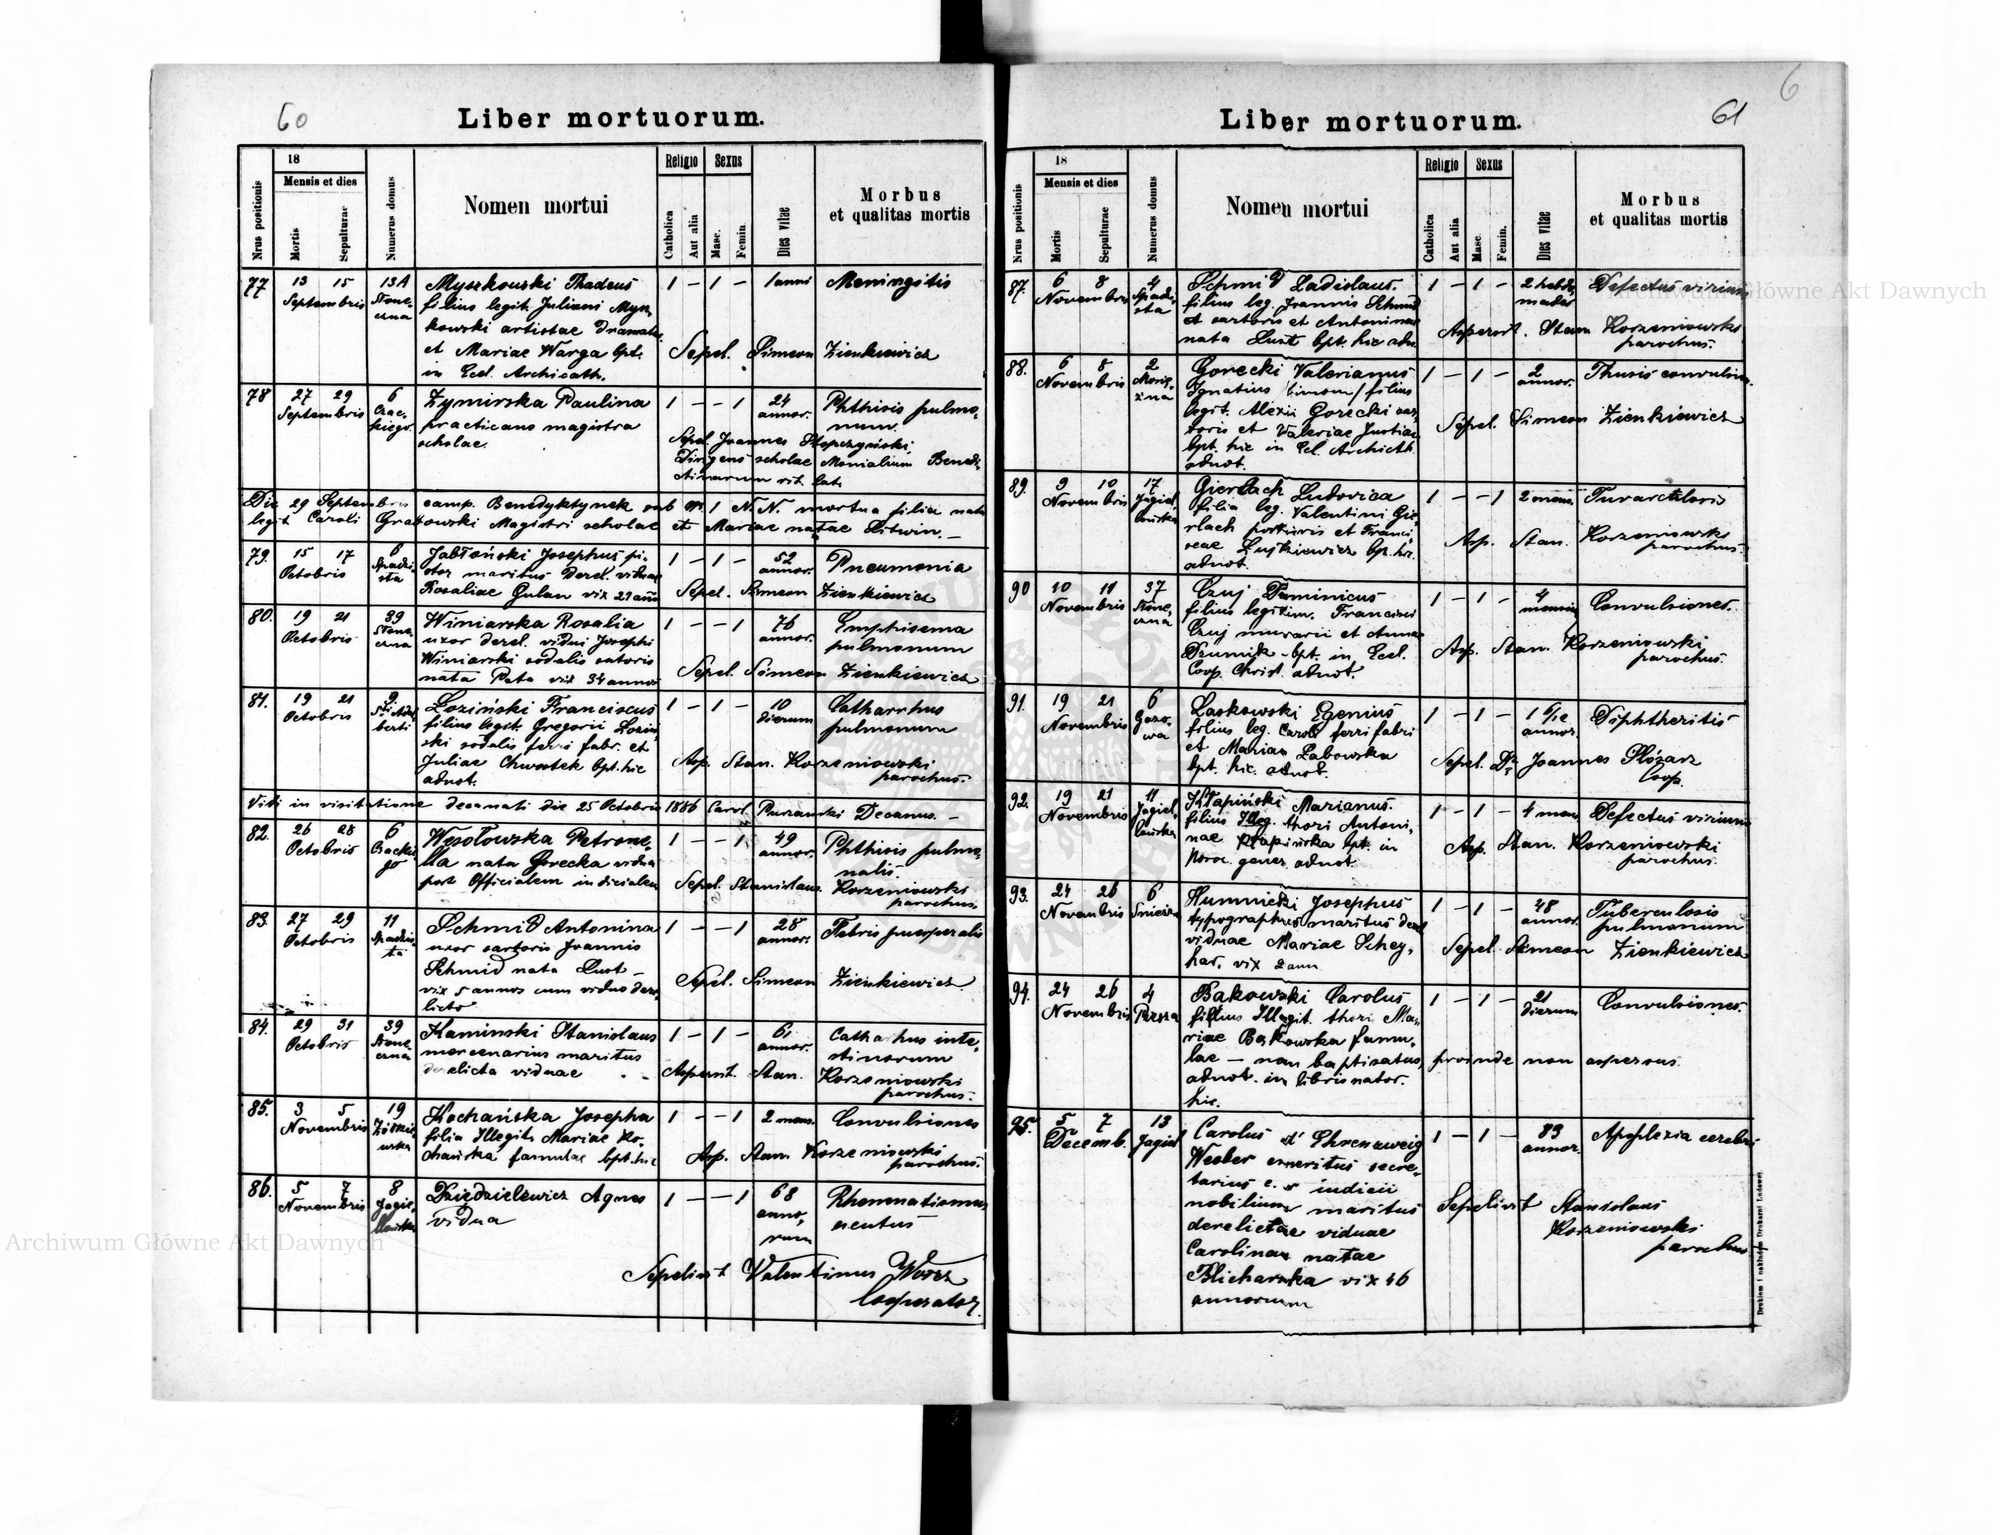 60
Liber mortuorum.
Nrus positionis
18
Mensis et dies
Mortis
Sepulturae
Numerus domus
Nomen mortui
Religio
Catholica
Aut alia
Sexus
Masc.
Femin.
Dies vitae
Morbus
et qualitas mortis
77 13 15 13A Myszkowski Thadeus 1 – 1 – 1 anni Meningitis
Septembris
filius legit. Juliani Mysz
kowski artistae dramatic
et Mariae Warga bpt.
Sepel. Simeon Zienkiewicz
in Eccl. Archicath.
78 27 29 6 Zymirska Paulina 1 – – 1 24 annor. Phthisis pulmo-
num.
Septembris
practicans magistra
scholae.
Sepel. Joannes
Dirigens scholae Monialium Benedi-
ctinarum rit. lat.
Die 29 Septembris camp. Benedyktynek sub Nr. 1 N.N. mortua filia nata
legit. Caroli Magistri scholae et Mariae natae Litwin. –
79. 15 17 6 Jabłoński Josephus pi- 1 – 1 – 52 annor. Pneumonia
Octobris
ctor maritus derel. viduae
Rosaliae Gulan vix 29 ann
Sepel. Simeon Zienkiewicz
80. 19 21 39 Winiarska Rosalia 1 – – 1 76 annor. Emphisema
pulmonum
Octobris
uxor derel. vidui Josephi
Winiarski sodalis sutoris
nata Peta vix 34 annos
Sepel. Simeon Zienkiewicz
81. 19 21 9 Łoziński Franciscus 1 – 1 – 10 dierum Catharrhus
pulmonum
Octobris
filius legit. Gregorii Łozin
ski sodalis ferri fabr. et
Juliae Chwostek bpt. hic
adnot.
Asp. Stan. Korzeniowski
parochus.
Vidi in visitatione decanali die 25 Octobris 1886 Carol. Decanus. –
82. 26 28 6 Wesołowska Petrone- 1 – – 1 49 annor. Phthisis pulmo-
nalis.
Octobris
lla nata Gorecka vidua
post Officialem indicialem
Sepel. Stanislaus Korzeniowski
parochus.
83. 27 29 11 Schmid Antonina 1 – – 1 28 annor. Febris puerperalis
Octobris
uxor sartoris Joannis
Schmid nata Lust –
vix 5 annos cum viduo dere
licto
Sepel. Simeon Zienkiewicz.
84. 29 31 39 Kaminski Stanislaus 1 – 1 – 61 annor. Catharrhus inte-
stinorum
Octobris
mercenarius maritus
derelicta viduae
Aspersit. Stan. Korzeniowski
parochus.
85. 3 5 19 Kochańska Josepha 1 – – 1 2 mens. Convulsiones
Novembris
filia Illegit. Mariae Ko-
chańska famulae bpt. hic
Asp. Stan. Korzeniowski
parochus.
86. 5 7 8 Dziedzielewicz Agnes 1 – – 1 68 anno-
rum Rhenmatismus
acutus
Novembris
vidua
Sepelivit Valentinus
Cooperator.
6
61
Liber mortuorum.
Nrus positionis
18
Mensis et dies
Mortis
Sepulturae
Numerus domus
Nomen mortui
Religio
Catholica
Aut alia
Sexus
Masc.
Femin.
Dies vitae
Morbus
et qualitas mortis
87. 6 8 4 Schmid Ladislaus. 1 – 1 – 2 hebdo-
mader Defectus virium
Novembris
filius leg. Joannis Schmid
et sartoris et Antoninae
nata Lust bpt. hic adn.
Aspersit. Stan Korzeniowski
parochus.
88. 6 8 2 Gorecki Valerianus 1 – 1 – 2 annor. Thusis convulsiva
Novembris
Ignatius /binom/ filius
legit. Alexii Gorecki sar
toris et Valeriae Justian
bpt. hic in Ecl. Archicth.
adnot.
Sepel. Simeon Zienkiewicz
89. 9 10 17 Gierlach Ludovica 1 – – 1 2 mens.
Novembris
filia leg. Valentini Gie
rlach et Franci
scae bp. hic.
adnot.
Asp. Stan. Korzeniowski
parochus.
90 10 11 37 Czuj Dominicus 1 – 1 – 4 mensium Convulsiones.
Novembris
filius legitim. Francisci
Czuj murarii et Annae
bpt. in Eccl.
Coop. Christ. adnot.
Asp. Stan. Korzeniowski
parochus.
91. 19 21 6 Laskowski Egenius 1 – 1 – 1 6/12 annor. Diphtheritis
Novembris
filius leg. Caroli ferri fabri
et Mariae Łabowska
bpt. hic. adnot.
Sepel. Dr. Joannes Ślósarz
Coop.
92. 19 21 11 Kłapiński Marianus. 1 – 1 – 4 men Defectus virium
Novembris
filius Illeg. thori Antoni-
nae Kłapińska bpt. in
Noso. gener. adnot.
Asp. Stan. Korzeniowski
parochus.
93. 24 26 6 Humnicki Josephus 1 – 1 – 48 annor. Tuberculosis
pulmonum
Novembris
typographus maritus derel
viduae Mariae Schey-
har, vix 2 ann
Sepel. Simeon Zienkiewicz
94. 24 26 4 Bakowski Carolus 1 – 1 – 21 dierum Convulsiones.
Novembris
filius Illegit. thori Ma-
riae Bakowska famu-
lae – non baptisatus, proinde non aspersus.
adnot. in libris nator.
hic.
95. 5 7 13 Carolus d' Ehrenzweig 1 – 1 – 83 annor. Apoplexia cerebri
Decemb. Jagiel
Weeber emeritus secre-
tarius c. r indicii
nobilium maritus
derelictae viduae
Carolinae natae
Blicharska vix 46
annorum
Sepelivit Stanislaus
Korzeniowski
parochus
Drukiem i nakładem Drukarni Ludowej.
Archiwum Główne Akt Dawnych
Archiwum Główne Akt Dawnych